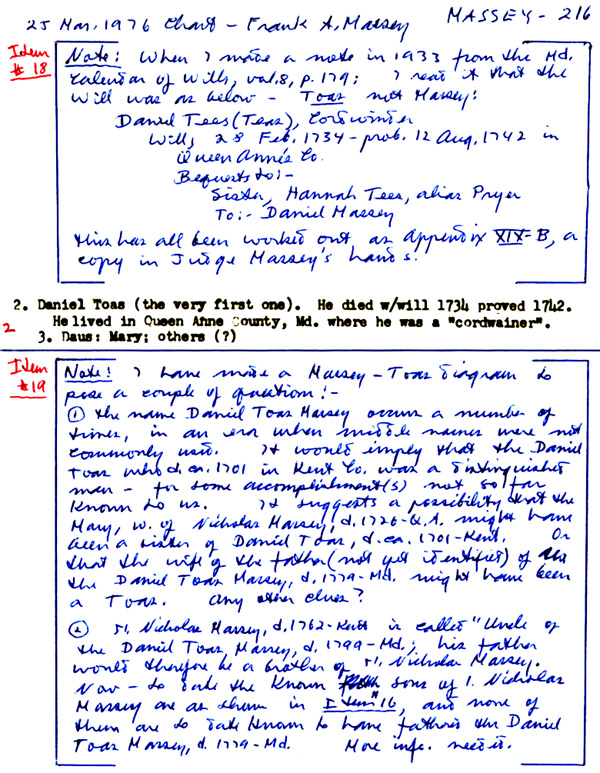 25 Mar. 1976 Chart - Frank A. Massey MASSEY - 216
Item # 18
Note: When I made a note in 1933 from the Md.
Calendar of Wills, vol. 8, p. 179; I read it that the
Will was as below - Toas not Massey:
Daniel Tees (Teas), Cordwinder
Will, 28 Feb. 1734 - prob. 12 Aug, 1742 in
Queen Anne's Co.
Bequests to:-
Sister, Hannah Tees, alias Pryer
To:- Daniel Massey
this has all been worked out as Appendix XIX-B, a
copy in Judge Massey's hands.
2. Daniel Toas (the very first one). He died w/will 1734 proved 1742.
2 He lived in Queen Ahne County, Md. where he was a "cordwainer".
3. Daus: Mary; others (?)
Item #19
Note! I have made a Massey - Toas diagram to
pose a couple of question:-
① the name Daniel Toas Massey occurs a number of
times, in an era when middle names were not
commonly used. It would imply that the Daniel
Toas who d. ca. 1701 in Kent Co. was a distinguished
man - for some accomplishment(s) not so far
known to us. It suggests a possibility that the
Mary, w. of Nicholas Massey, d. 1726-Q.A. might have
been a sister of Daniel Toas, d. ca. 1701-Kent. Or
that the wife of the father (not yet identified) of
the Daniel Toas Massey, d. 1779-Md. might have been
a Toas. Any other clues?
② 51. Nicholas Massey, d. 1762-Kent is called "Uncle of
the Daniel Toas, Massey, d. 1799-Md.; his father
would therefore be a brother of 51. Nicholas Massey.
Now - to date the known sons of 1. Nicholas
Massey are as shown in Item #16, and none of
them are to date known to have fathered the Daniel
Toas Massey, d. 1779-Md. More info. needed.